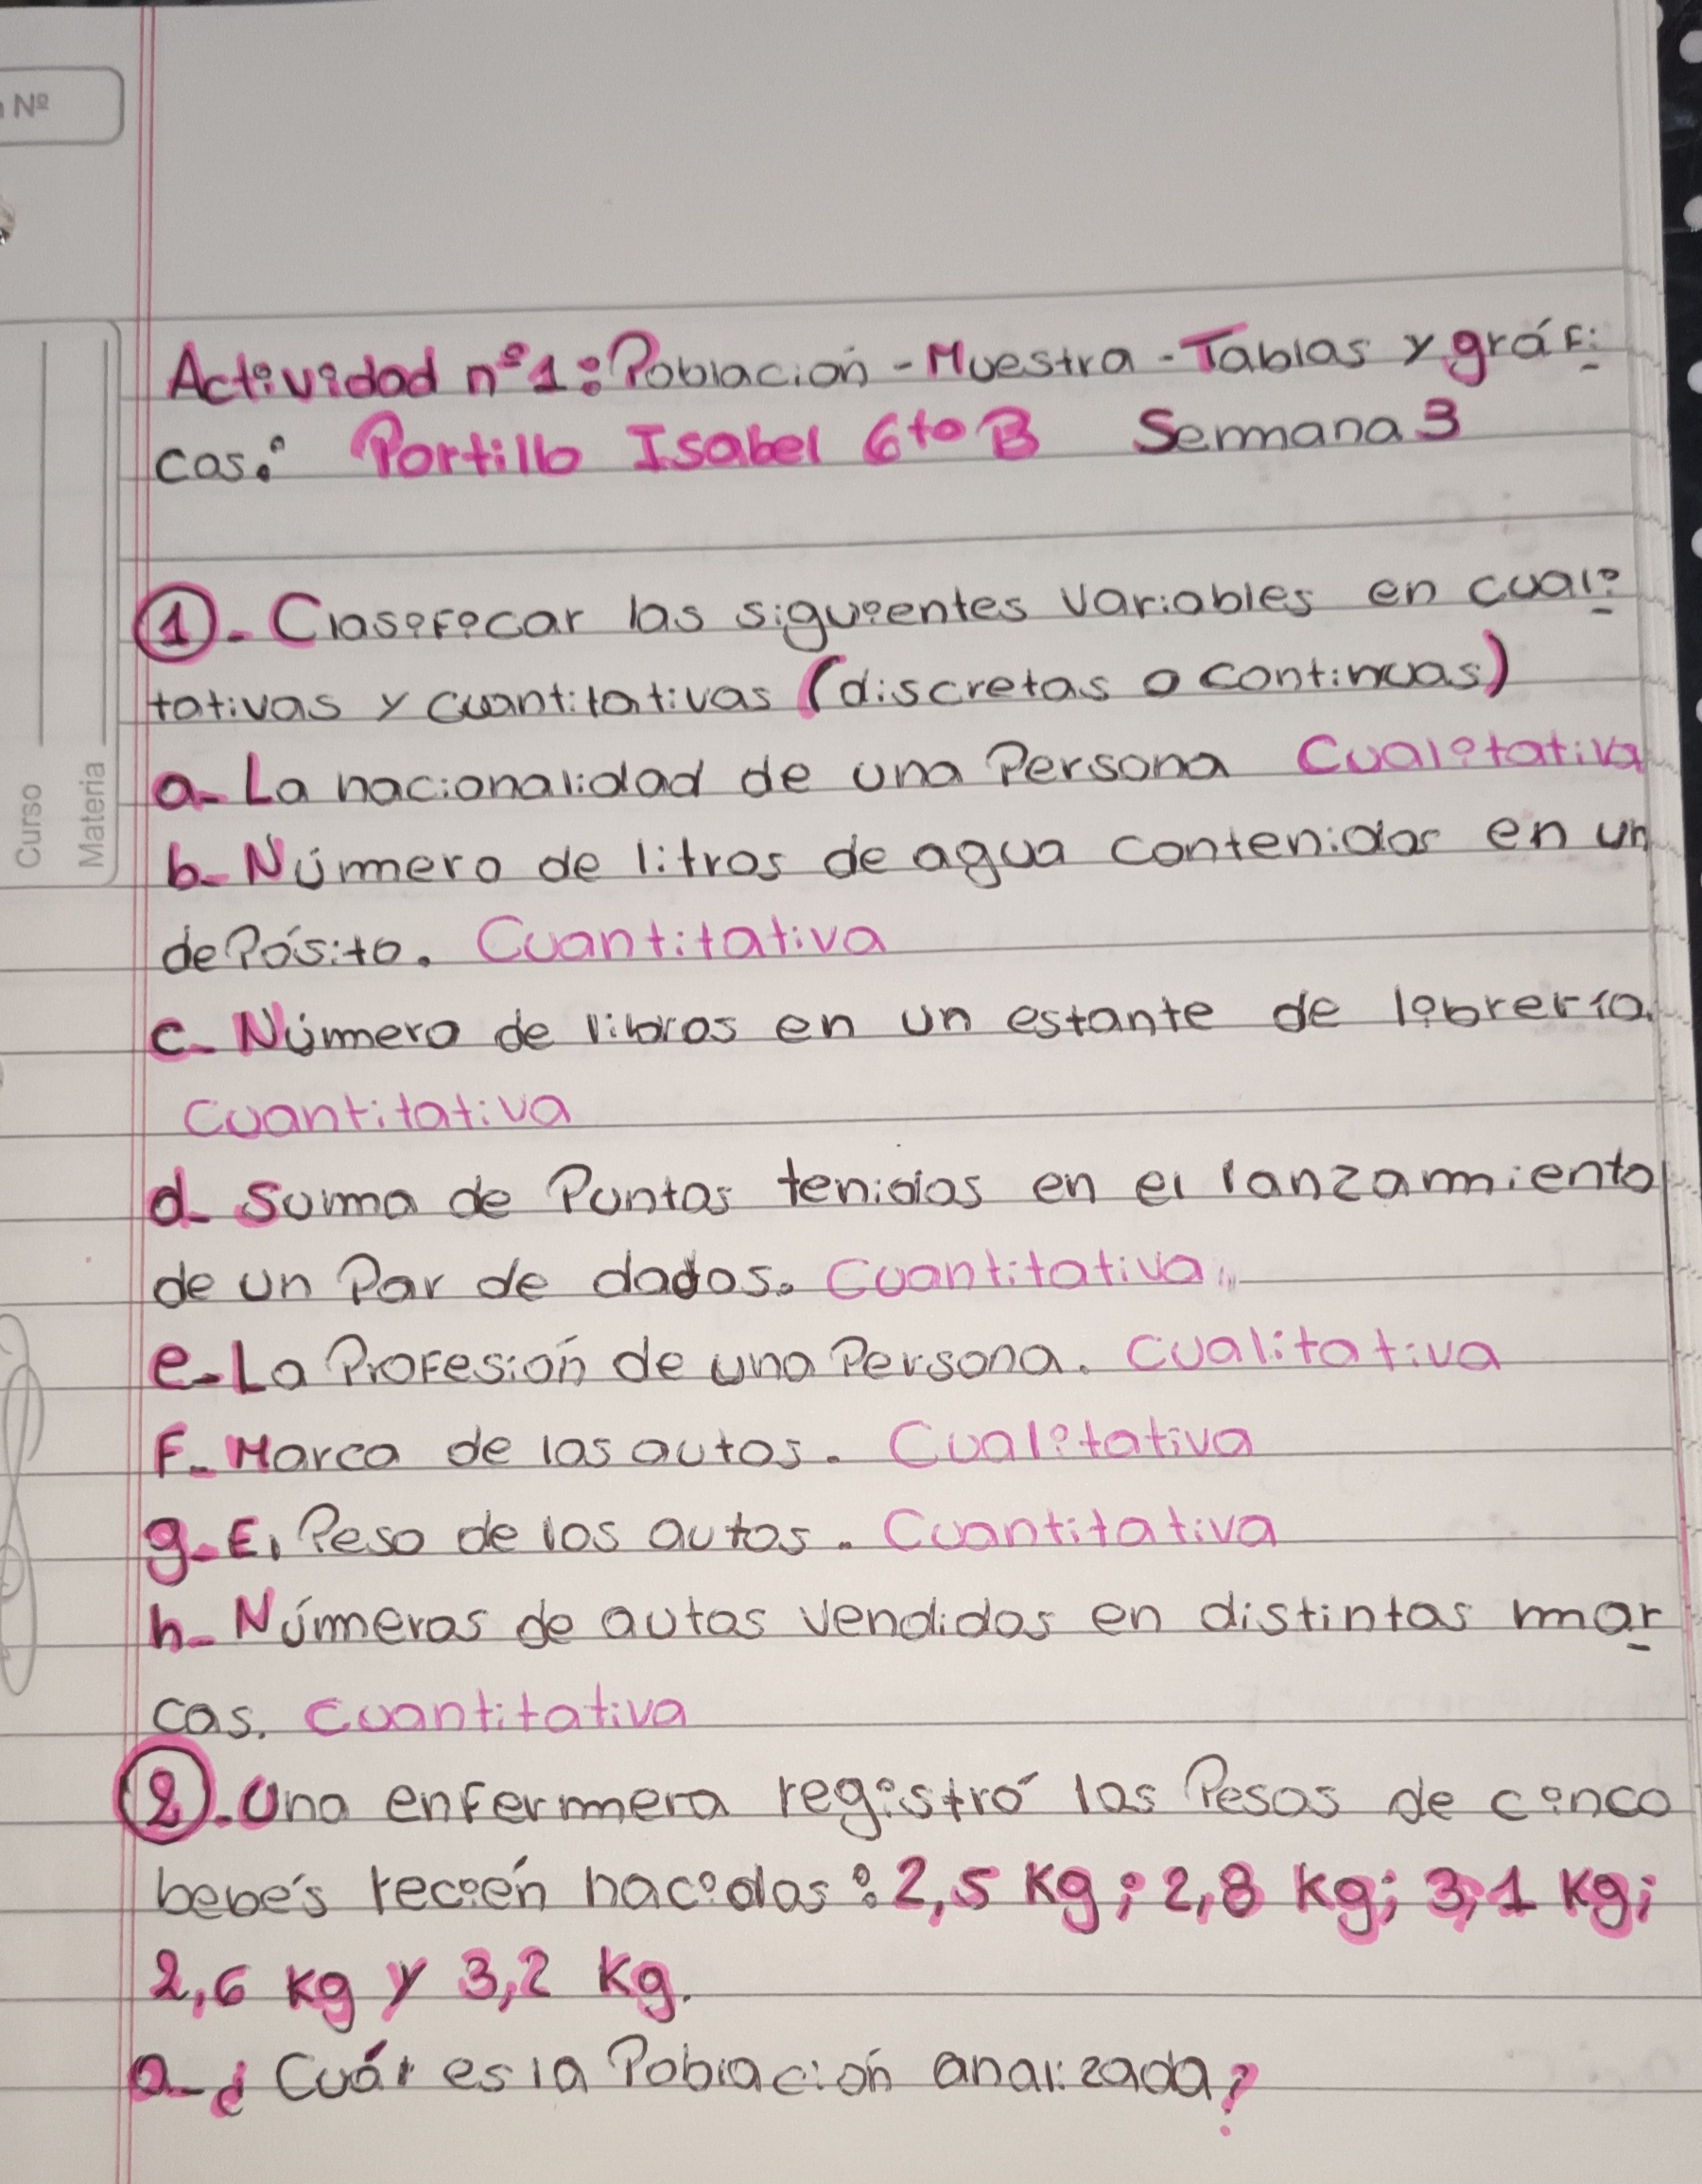 Nº
Curso
Materia
Actividad nº1: Población - Muestra - Tablas y gráfi
cos: Portillo Isabel 6to B Semana 3
1. Clasificar las siguientes variables en cuali
tativas y cuantitativas (discretas o continuas)
a- La nacionalidad de una Persona Cualitativa
b- Número de litros de agua contenidos en un
depósito. Cuantitativa
c- Número de libros en un estante de librería.
Cuantitativa
d- Suma de Puntos tenidos en el lanzamiento
de un Par de dados. Cuantitativa
e- La Profesión de una Persona. Cualitativa
F- Marca de los autos. Cualitativa
g- El Peso de los autos. Cuantitativa
h- Números de autos vendidos en distintas mar
cas. Cuantitativa
2. Una enfermera registró los Pesos de cinco
bebés recién nacidos: 2,5 Kg; 2,8 Kg; 3,1 Kg;
2,6 Kg y 3,2 Kg.
a- ¿Cuál es la Población analizada?